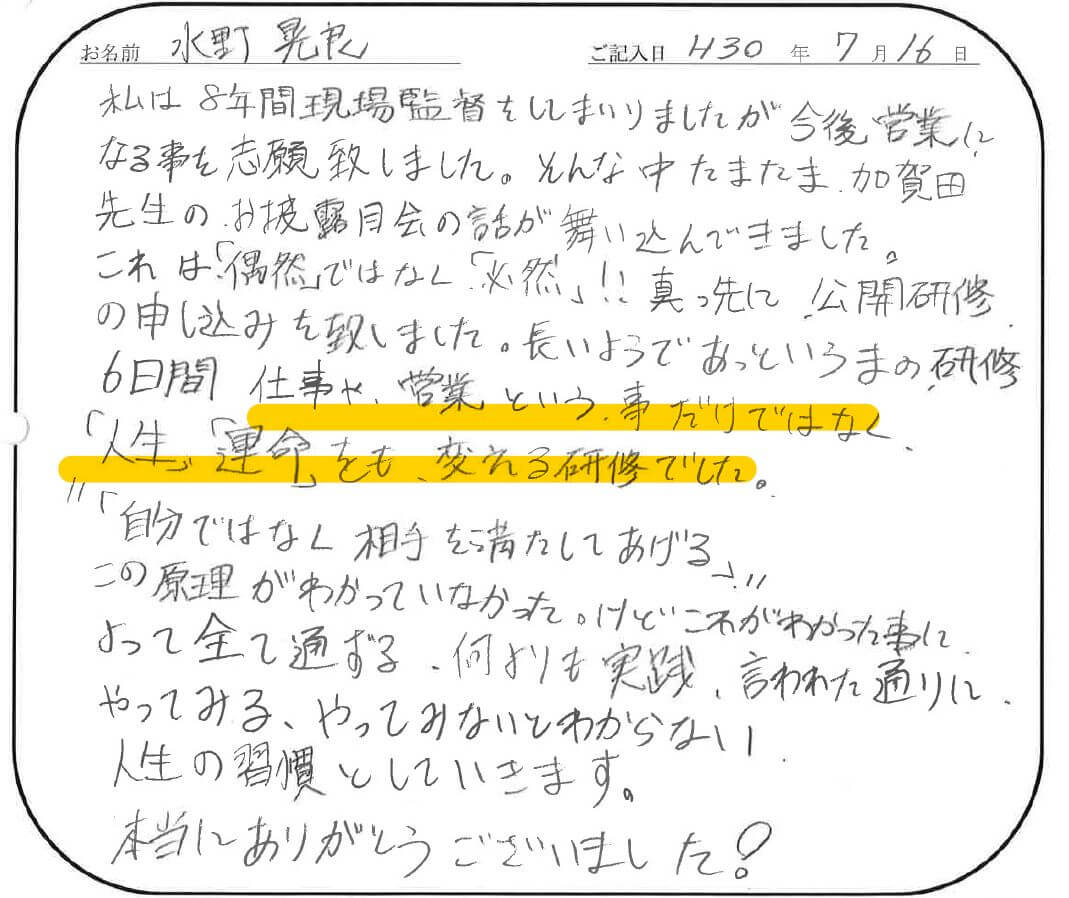 お名前 水野 晃良 ご記入日 H30 年 7 月 16 日
私は 8年間現場監督をしてまいりましたが 今後 営業に
なる事を志願致しました。そんな中たまたま、加賀田
先生の お披露目会の話が 舞い込んできました。
これは「偶然」ではなく「必然」!! 真っ先に 公開研修
の申し込みを致しました。長いようであっというまの研修
6日間 仕事や、営業 という、事だけではなく、
「人生」「運命」をも、変える研修でした。
"「自分ではなく 相手を満たしてあげる」"
この原理がわかっていなかった。けどこれがわかった事に
よって全て通ずる、何よりも実践、言われた通りに、
やってみる、やってみないとわからない!
人生の習慣としていきます。
本当にありがとうございました!